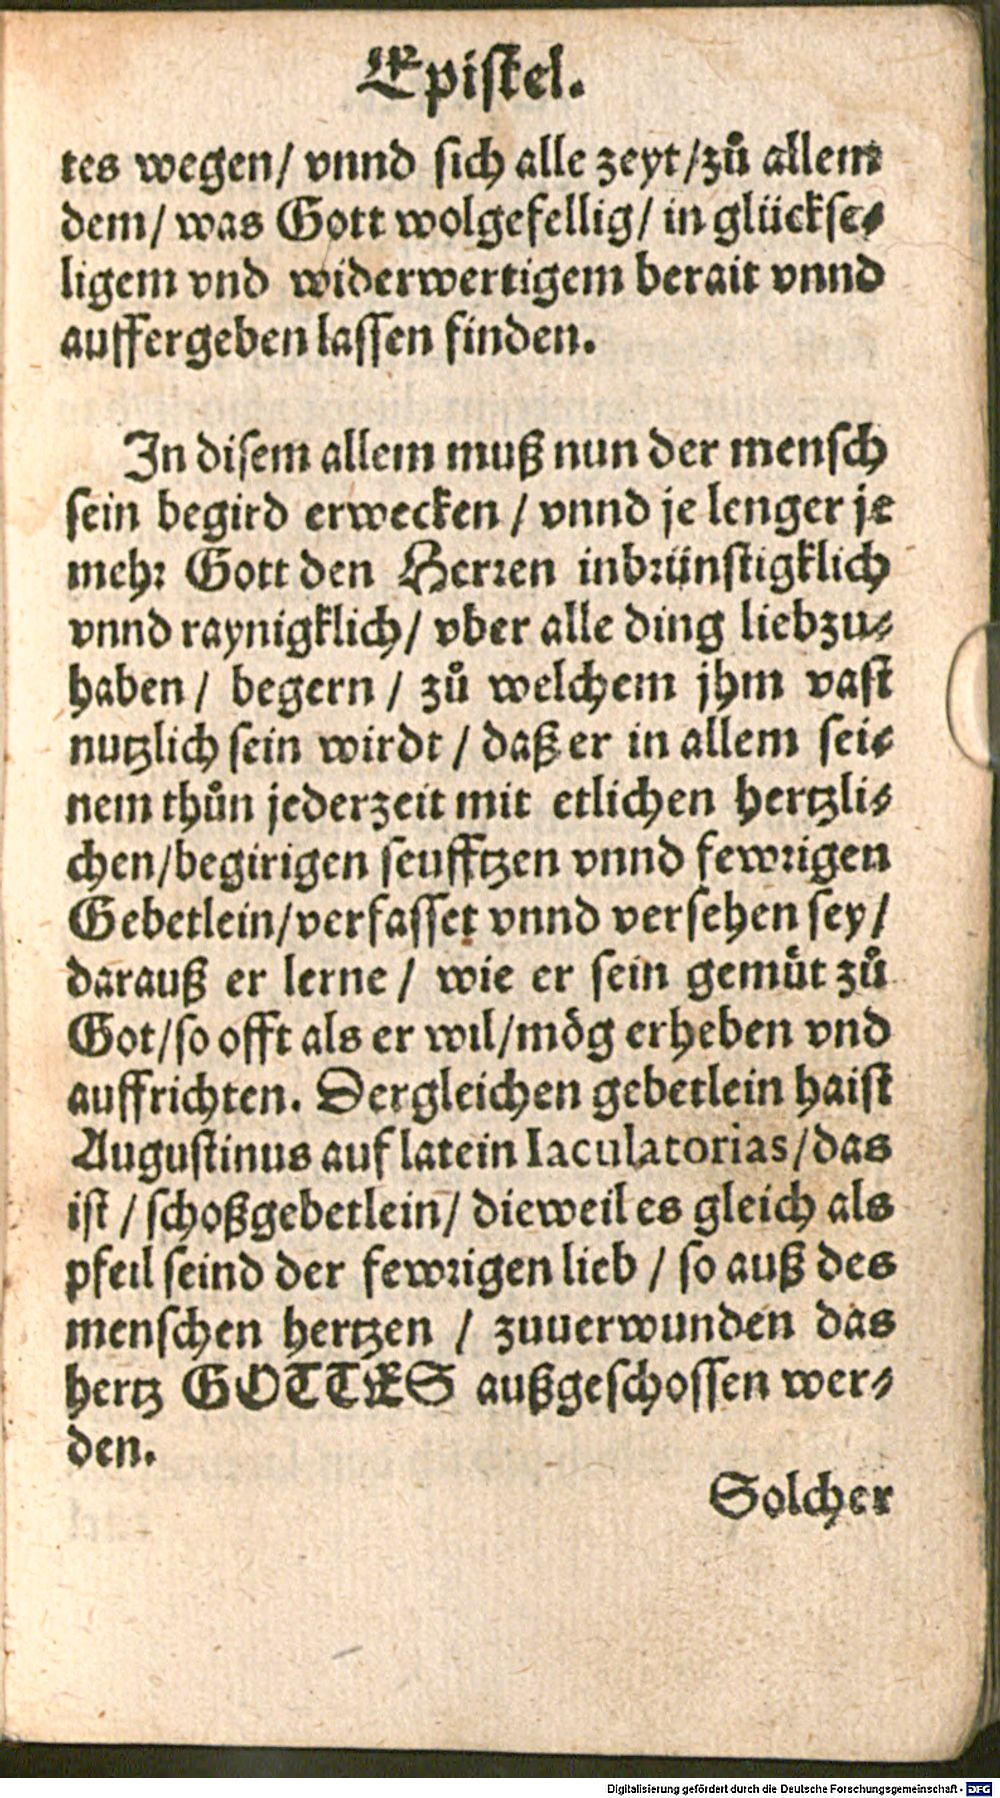 Epistel.
tes wegen/ vnnd sich alle zeyt/zů allem
dem/ was Gott wolgefellig/ in glückse-
ligem vnd widerwertigem berait vnnd
auffergeben lassen finden.
In disem allem muß nun der mensch
sein begird erwecken / vnnd je lenger je
mehr Gott den Herren inbrünstigklich
vnnd raynigklich/ vber alle ding liebzu-
haben/ begern / zů welchem jhm vast
nutzlich sein wirdt / daß er in allem sei-
nem thůn jederzeit mit etlichen hertzli-
chen/begirigen seufftzen vnnd fewrigen
Gebetlein/verfasset vnnd versehen sey/
darauß er lerne / wie er sein gemůt zů
Got/so offt als er wil/mög erheben vnd
auffrichten. Dergleichen gebetlein haist
Augustinus auf latein Iaculatorias/das
ist / schoßgebetlein/ dieweil es gleich als
pfeil seind der fewrigen lieb / so auß des
menschen hertzen / zuuerwunden das
hertz GOTTES außgeschossen wer-
den.
Solcher
Digitalisierung gefördert durch die Deutsche Forschungsgemeinschaft - DFG